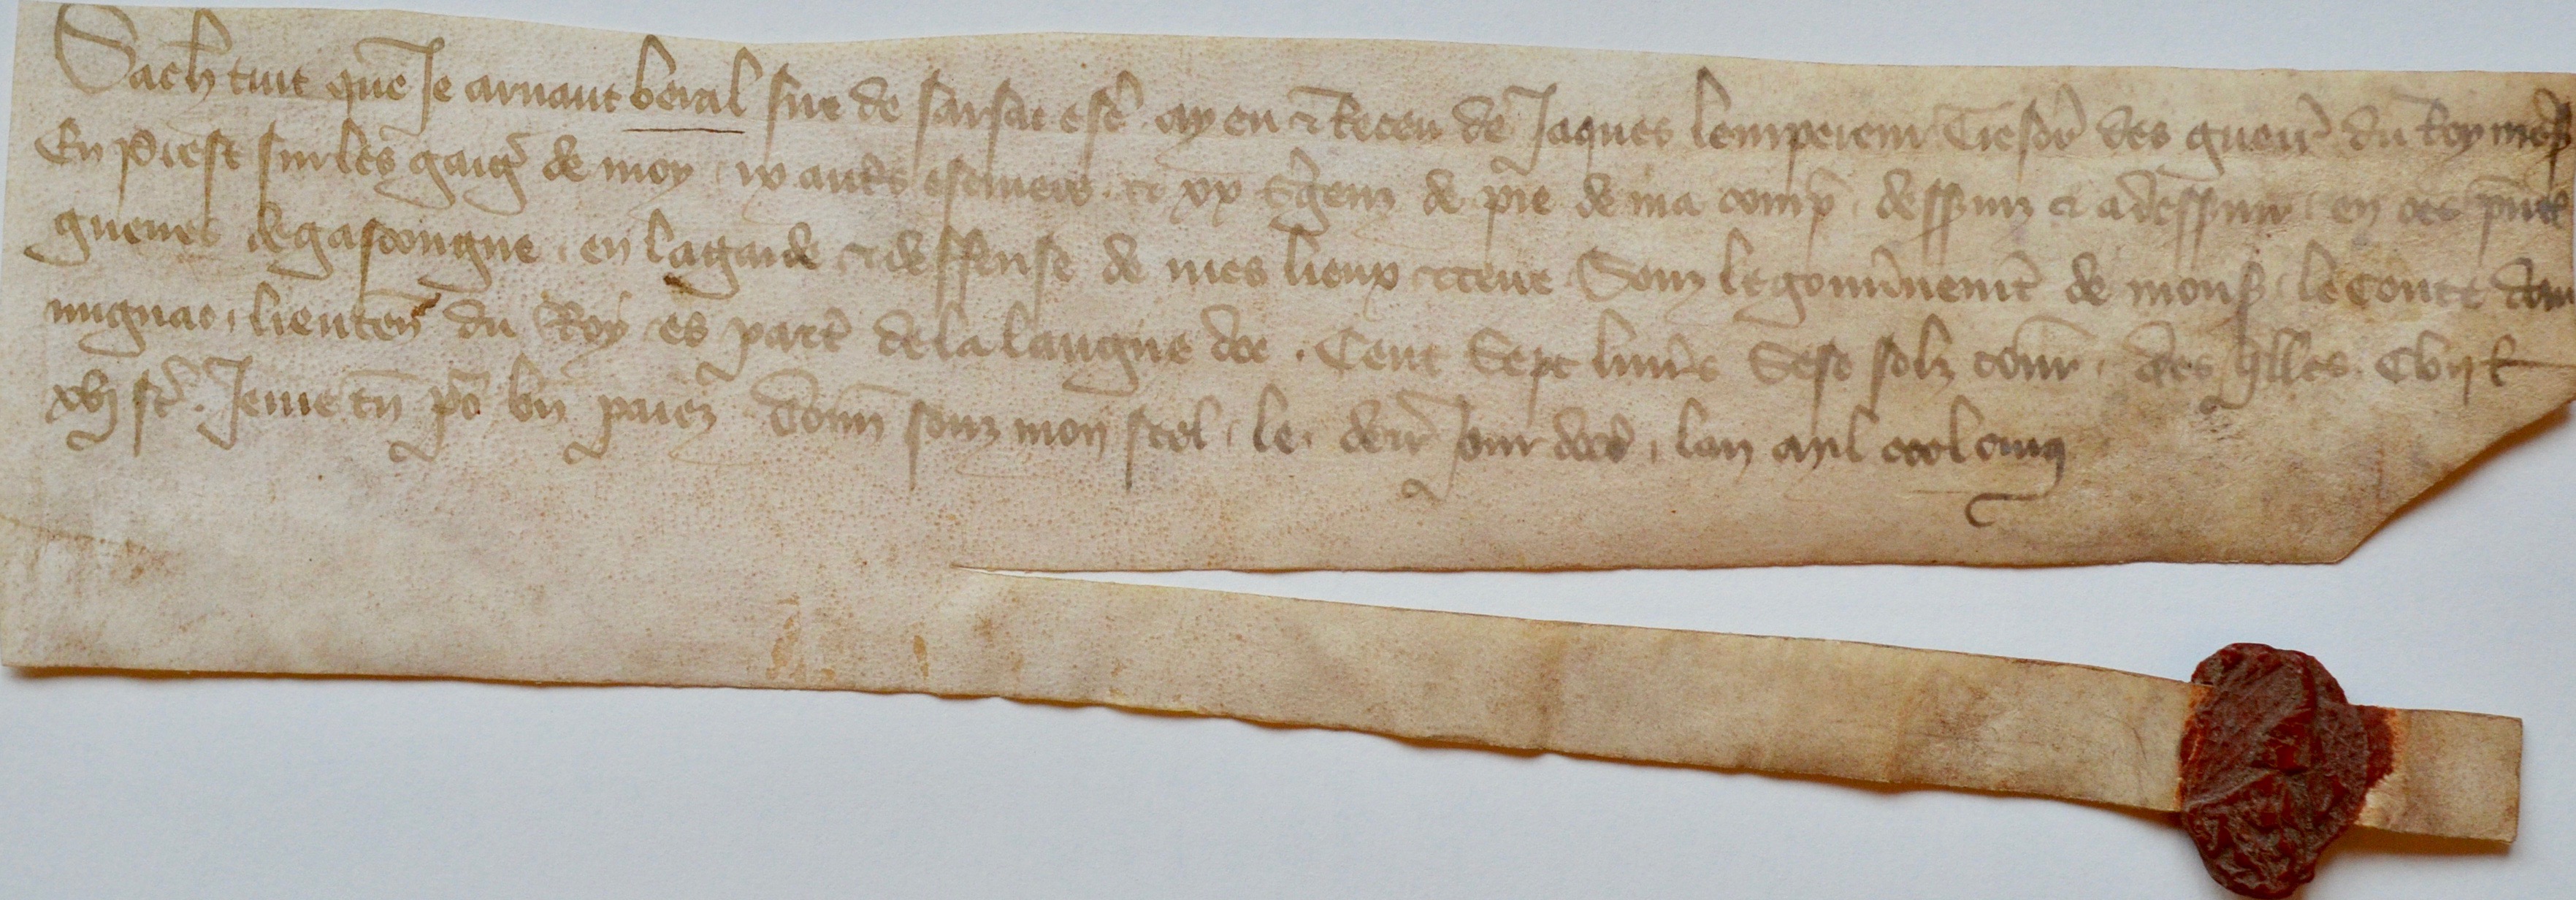 Sach tuit que Je arnaut beral sire de sarsac esc ay eu & Receu de Jaques lempereur Tresor des guerr du Roy nress
En Prest sur les gaig de moy ix autrs escuiers et xx sgens de pie de ma comp desseruiz & adesseruir en ces pntes
guerres de gascongne en la garde & deffense de mes lieux & terre Souz le gouuernemt de mons le Conte dar
mignac lieuten du Roy es part de la langue doc Cent Sept liures Sese solz tourn des qlles Cvij l
xvj s t Je me tn po bn paiez Donn souz mon seel le derr Jour doct lan mil ccclcinq